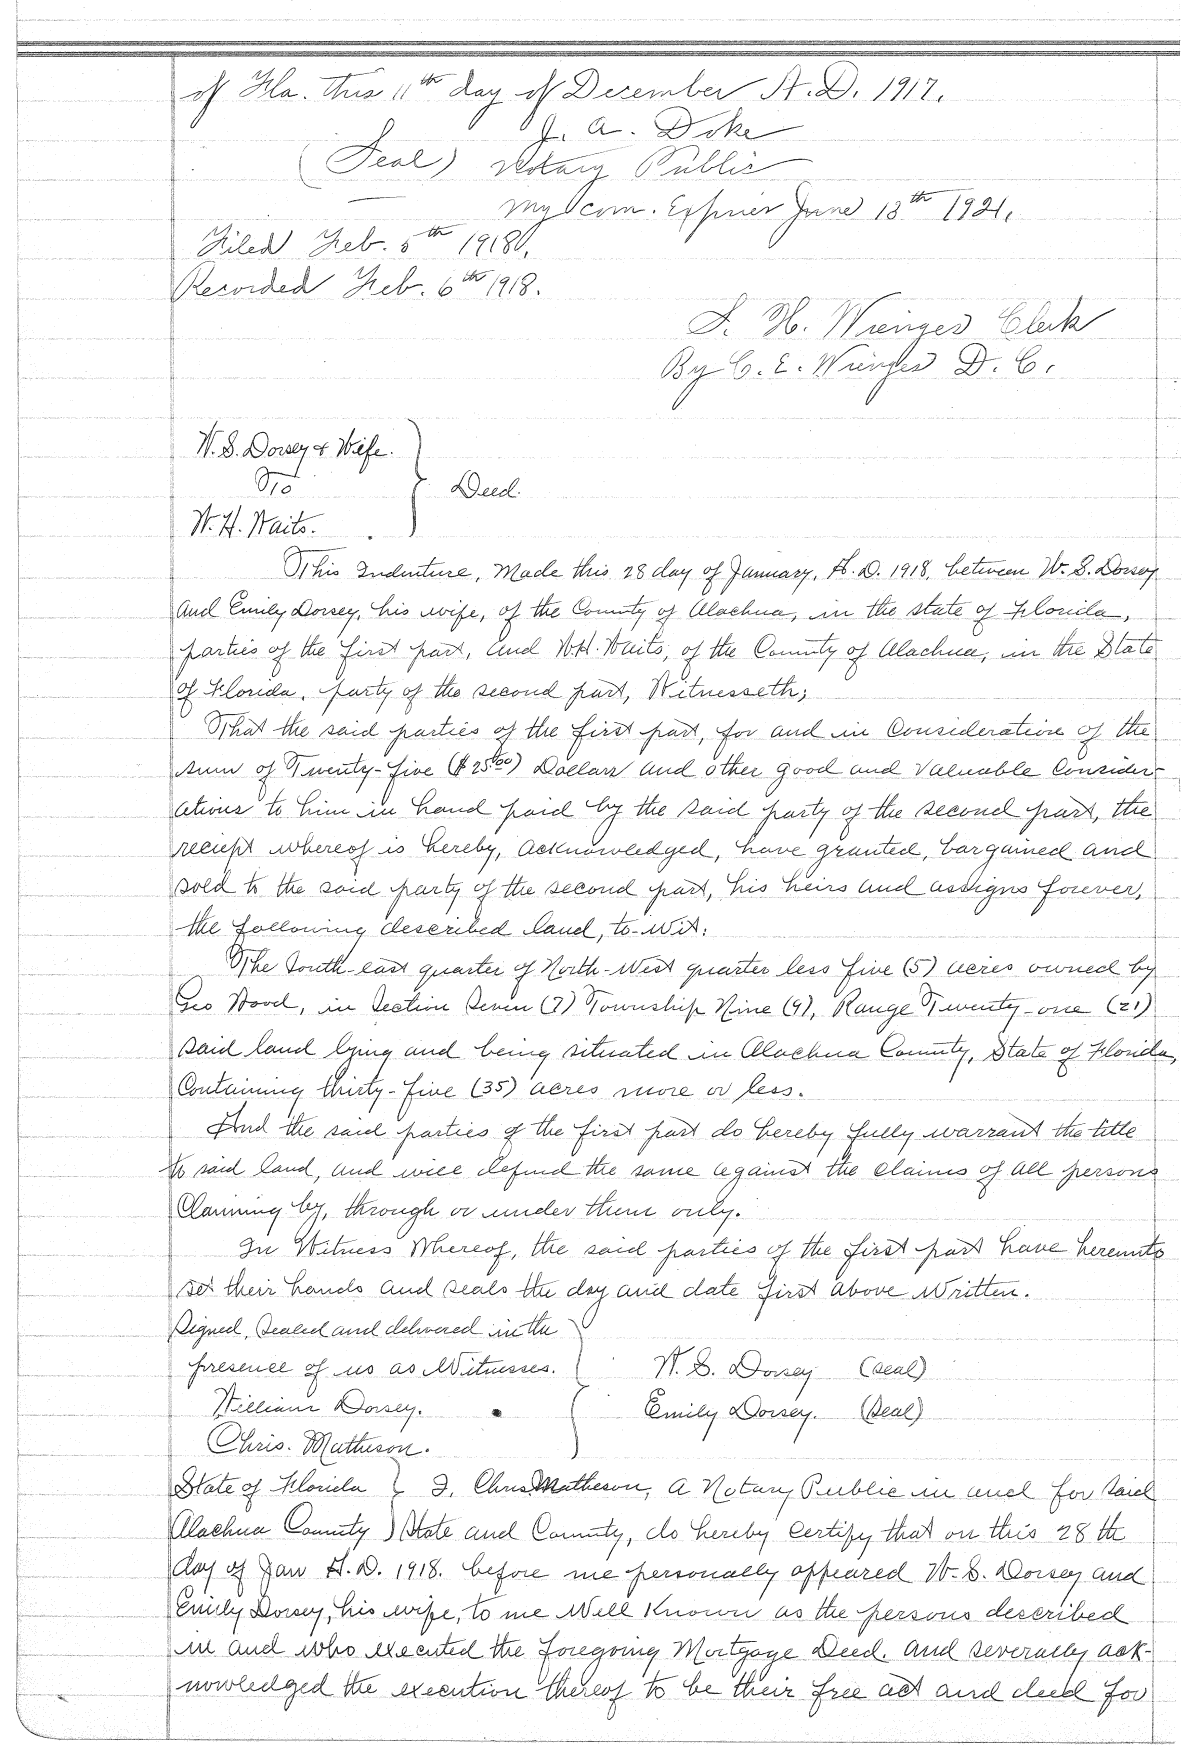 of Fla. this 11th day of December A.D. 1917.
J. A. Doke
(Seal) Notary Public
My com. Expires June 13th 1921.
Filed Feb. 5th 1918.
Recorded Feb. 6th 1918.
S. H. Wienges Clerk
By C. E. Wienges D. C.
W. S. Dorsey & Wife.
To } Deed.
W. H. Waits.
This Indenture, Made this 28 day of January, A. D. 1918, between W. S. Dorsey
and Emily Dorsey, his wife, of the County of Alachua, in the state of Florida,
parties of the first part, and W.H. Waits, of the County of Alachua, in the State
of Florida, party of the second part, Witnesseth;
That the said parties of the first part, for and in Consideration of the
sum of Twenty-five ($25.00) Dollars and other good and valuable Consider-
ations to him in hand paid by the said party of the second part, the
reciept whereof is hereby, acknowledged, have granted, bargained and
sold to the said party of the second part, his heirs and assigns forever,
the following described land, to-wit:
The South-east quarter of North-West quarter less five (5) acres owned by
Geo Wood, in Section Seven (7) Township Nine (9), Range Twenty-one (21)
said land lying and being situated in Alachua County, State of Florida,
Containing thirty-five (35) acres more or less.
And the said parties of the first part do hereby fully warrant the title
to said land, and will defend the same against the claims of all persons
Claiming by, through or under them only.
In Witness Whereof, the said parties of the first part have hereunto
set their hands and seals the day and date first above Written.
Signed, Sealed and delivered in the
presence of us as Witnesses. W. S. Dorsey (Seal)
William Dorsey. Emily Dorsey. (Seal)
Chris. Matheson.
State of Florida } I, Chris Matheson, a Notary Public in and for said
Alachua County ) State and County, do hereby certify that on this 28 th
day of Jan A. D. 1918. before me personally appeared W. S. Dorsey and
Emily Dorsey, his wife, to me Well Known as the persons described
in and who executed the foregoing Mortgage Deed. and severally ack-
nowledged the execution thereof to be their free act and deed for